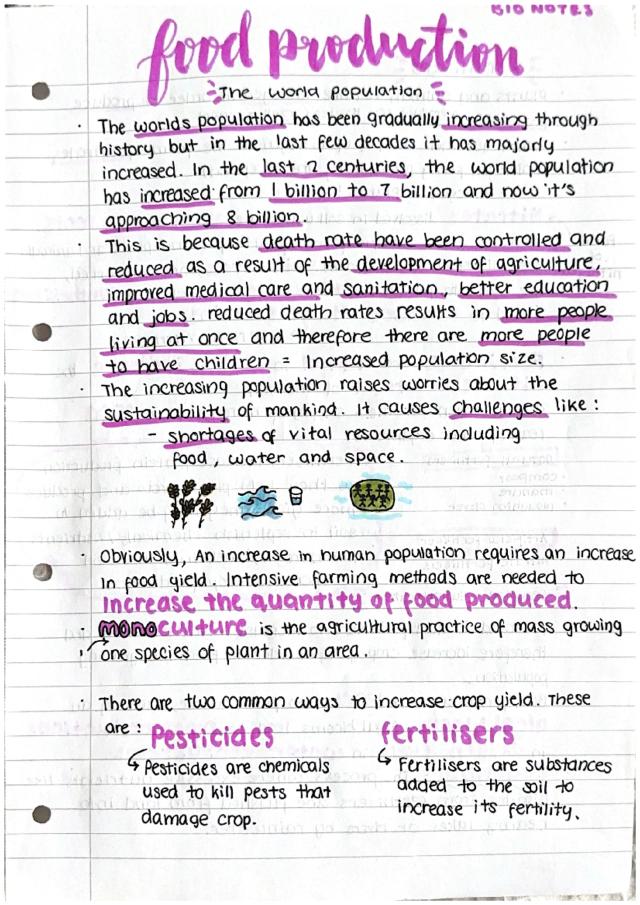 BIO NOTES
food production
The world population
· The worlds population has been gradually increasing through
history but in the last few decades it has majorly
increased. In the last 2 centuries, the world population
has increased from 1 billion to 7 billion and now it's
approaching 8 billion.
· This is because death rate have been controlled and
reduced as a result of the development of agriculture,
improved medical care and sanitation, better education
and jobs. reduced death rates results in more people
living at once and therefore there are more people
to have children = Increased population size.
· The increasing population raises worries about the
sustainability of mankind. It causes challenges like :
- shortages of vital resources including
food, water and space.
· Obviously, An increase in human population requires an increase
in food yield. Intensive farming methods are needed to
increase the quantity of food produced.
· monoculture is the agricultural practice of mass growing
one species of plant in an area.
· There are two common ways to increase crop yield. These
are :
Pesticides
↳ Pesticides are chemicals
used to kill pests that
damage crop.
fertilisers
↳ Fertilisers are substances
added to the soil to
increase its fertility.